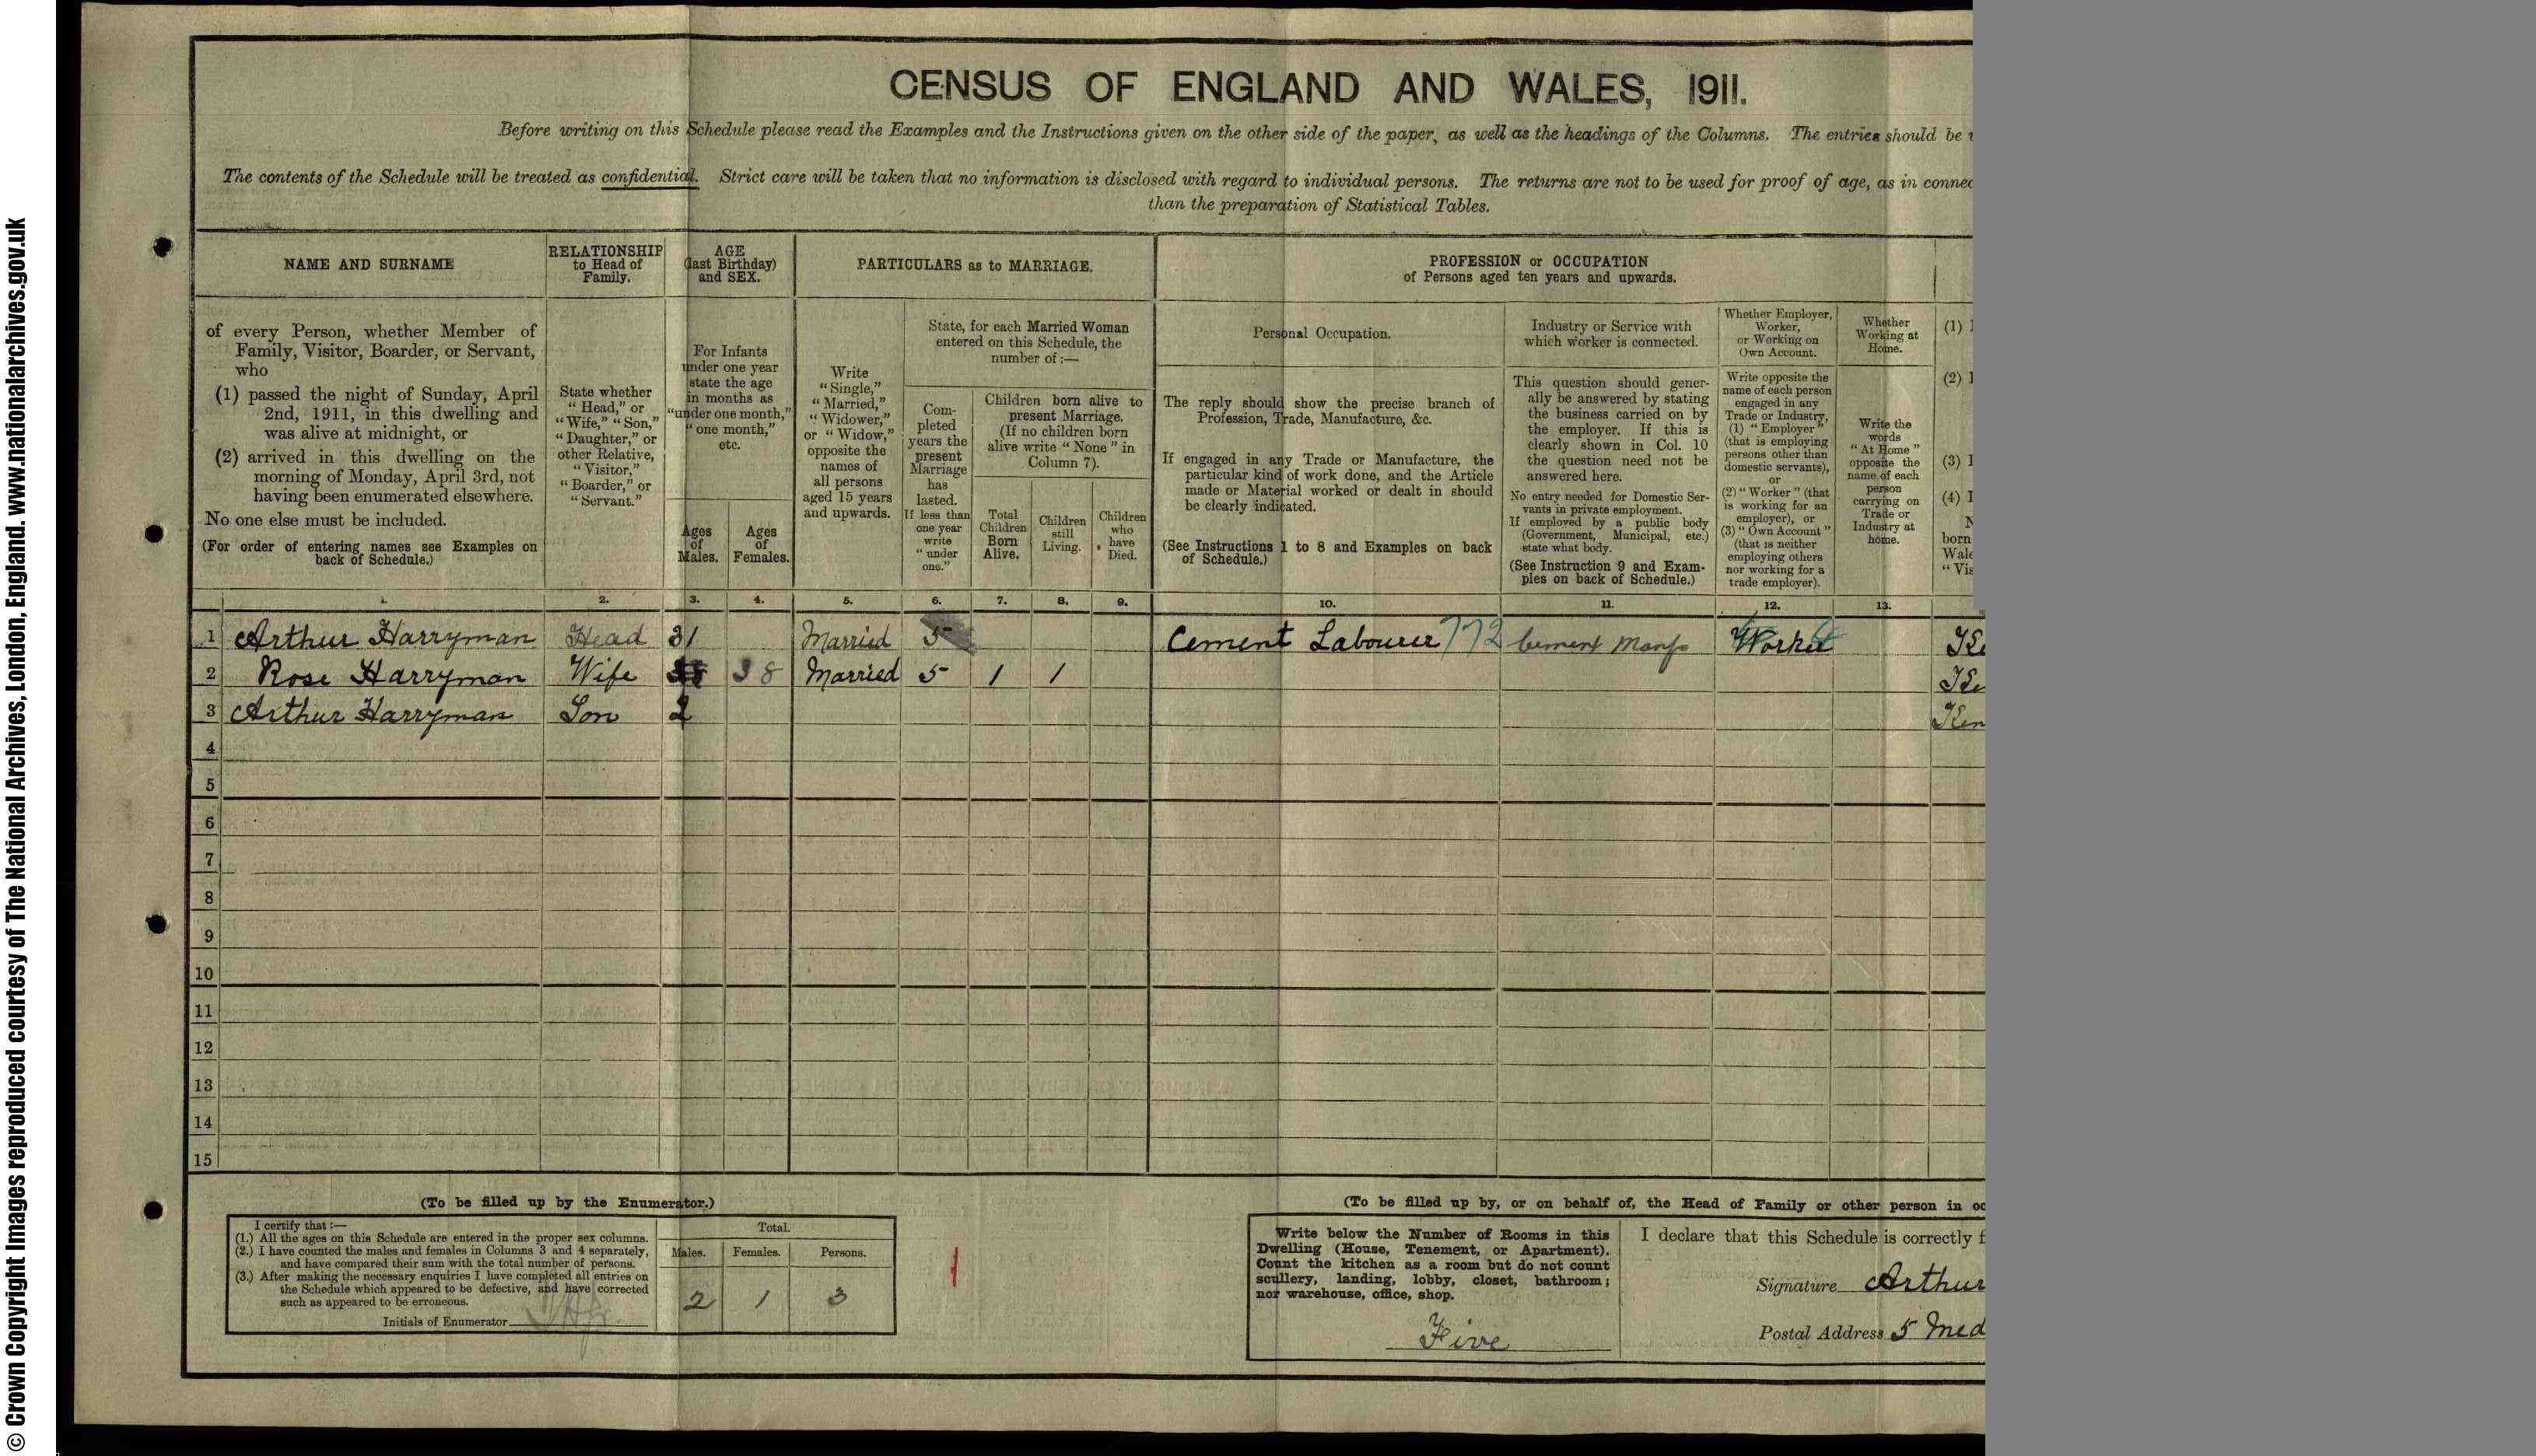 CENSUS OF ENGLAND AND WALES, 1911.
Before writing on this Schedule please read the Examples and the Instructions given on the other side of the paper, as well as the headings of the Columns. The entries should be
The contents of the Schedule will be treated as confidential. Strict care will be taken that no information is disclosed with regard to individual persons. The returns are not to be used for proof of age, as in connec
than the preparation of Statistical Tables.
NAME AND SURNAME
of every Person, whether Member of
Family, Visitor, Boarder, or Servant,
who
(1) passed the night of Sunday, April
2nd, 1911, in this dwelling and
was alive at midnight, or
(2) arrived in this dwelling on the
morning of Monday, April 3rd, not
having been enumerated elsewhere.
No one else must be included.
(For order of entering names see Examples on
back of Schedule.)
RELATIONSHIP
to Head of
Family.
State whether
"Head," or
"Wife," "Son,"
"Daughter," or
other Relative,
"Visitor,"
"Boarder," or
"Servant."
AGE
(last Birthday)
and SEX.
For Infants
under one year
state the age
in months as
"under one month,"
"one month,"
etc.
Ages
of
Males.
Ages
of
Females.
PARTICULARS as to MARRIAGE.
Write
"Single,"
"Married,"
"Widower,"
or "Widow,"
opposite the
names of
all persons
aged 15 years
and upwards.
State, for each Married Woman
entered on this Schedule, the
number of:—
Com-
pleted
years the
present
Marriage
has
lasted.
If less than
one year
write
"under
one."
Children born alive to
present Marriage.
(If no children born
alive write "None" in
Column 7).
Total
Children
Born
Alive.
Children
still
Living.
Children
who
have
Died.
PROFESSION or OCCUPATION
of Persons aged ten years and upwards.
Personal Occupation.
The reply should show the precise branch of
Profession, Trade, Manufacture, &c.
If engaged in any Trade or Manufacture, the
particular kind of work done, and the Article
made or Material worked or dealt in should
be clearly indicated.
(See Instructions 1 to 8 and Examples on back
of Schedule.)
Industry or Service with
which worker is connected.
This question should gener-
ally be answered by stating
the business carried on by
the employer. If this is
clearly shown in Col. 10
the question need not be
answered here.
No entry needed for Domestic Ser-
vants in private employment.
If employed by a public body
(Government, Municipal, etc.)
state what body.
(See Instruction 9 and Exam-
ples on back of Schedule.)
Whether Employer,
Worker,
or Working on
Own Account.
Write opposite the
name of each person
engaged in any
Trade or Industry,
(1) "Employer"
(that is employing
persons other than
domestic servants),
or
(2) "Worker" (that
is working for an
employer), or
(3) "Own Account"
(that is neither
employing others
nor working for a
trade employer).
Whether
Working at
Home.
Write the
words
"At Home"
opposite the
name of each
person
carrying on
Trade or
Industry at
home.
(1)
(2)
(3)
(4)
born
Wale
"Vis
1. 2. 3. 4. 5. 6. 7. 8. 9. 10. 11. 12. 13.
1 Arthur Harryman Head 31 Married 5 Cement Labourer 772 Cement Manf Worker
2 Rose Harryman Wife 38 Married 5 1 1
3 Arthur Harryman Son 2 Ken
4
5
6
7
8
9
10
11
12
13
14
15
(To be filled up by the Enumerator.)
I certify that:—
(1.) All the ages on this Schedule are entered in the proper sex columns.
(2.) I have counted the males and females in Columns 3 and 4 separately,
and have compared their sum with the total number of persons.
(3.) After making the necessary enquiries I have completed all entries on
the Schedule which appeared to be defective, and have corrected
such as appeared to be erroneous.
Initials of Enumerator
Total.
Males. Females. Persons.
2 1 3
1
(To be filled up by, or on behalf of, the Head of Family or other person in oc
Write below the Number of Rooms in this
Dwelling (House, Tenement, or Apartment).
Count the kitchen as a room but do not count
scullery, landing, lobby, closet, bathroom;
nor warehouse, office, shop.
Five
I declare that this Schedule is correctly f
Signature Arthur
Postal Address 5 Med
© Crown Copyright Images reproduced courtesy of The National Archives, London, England. www.nationalarchives.gov.uk